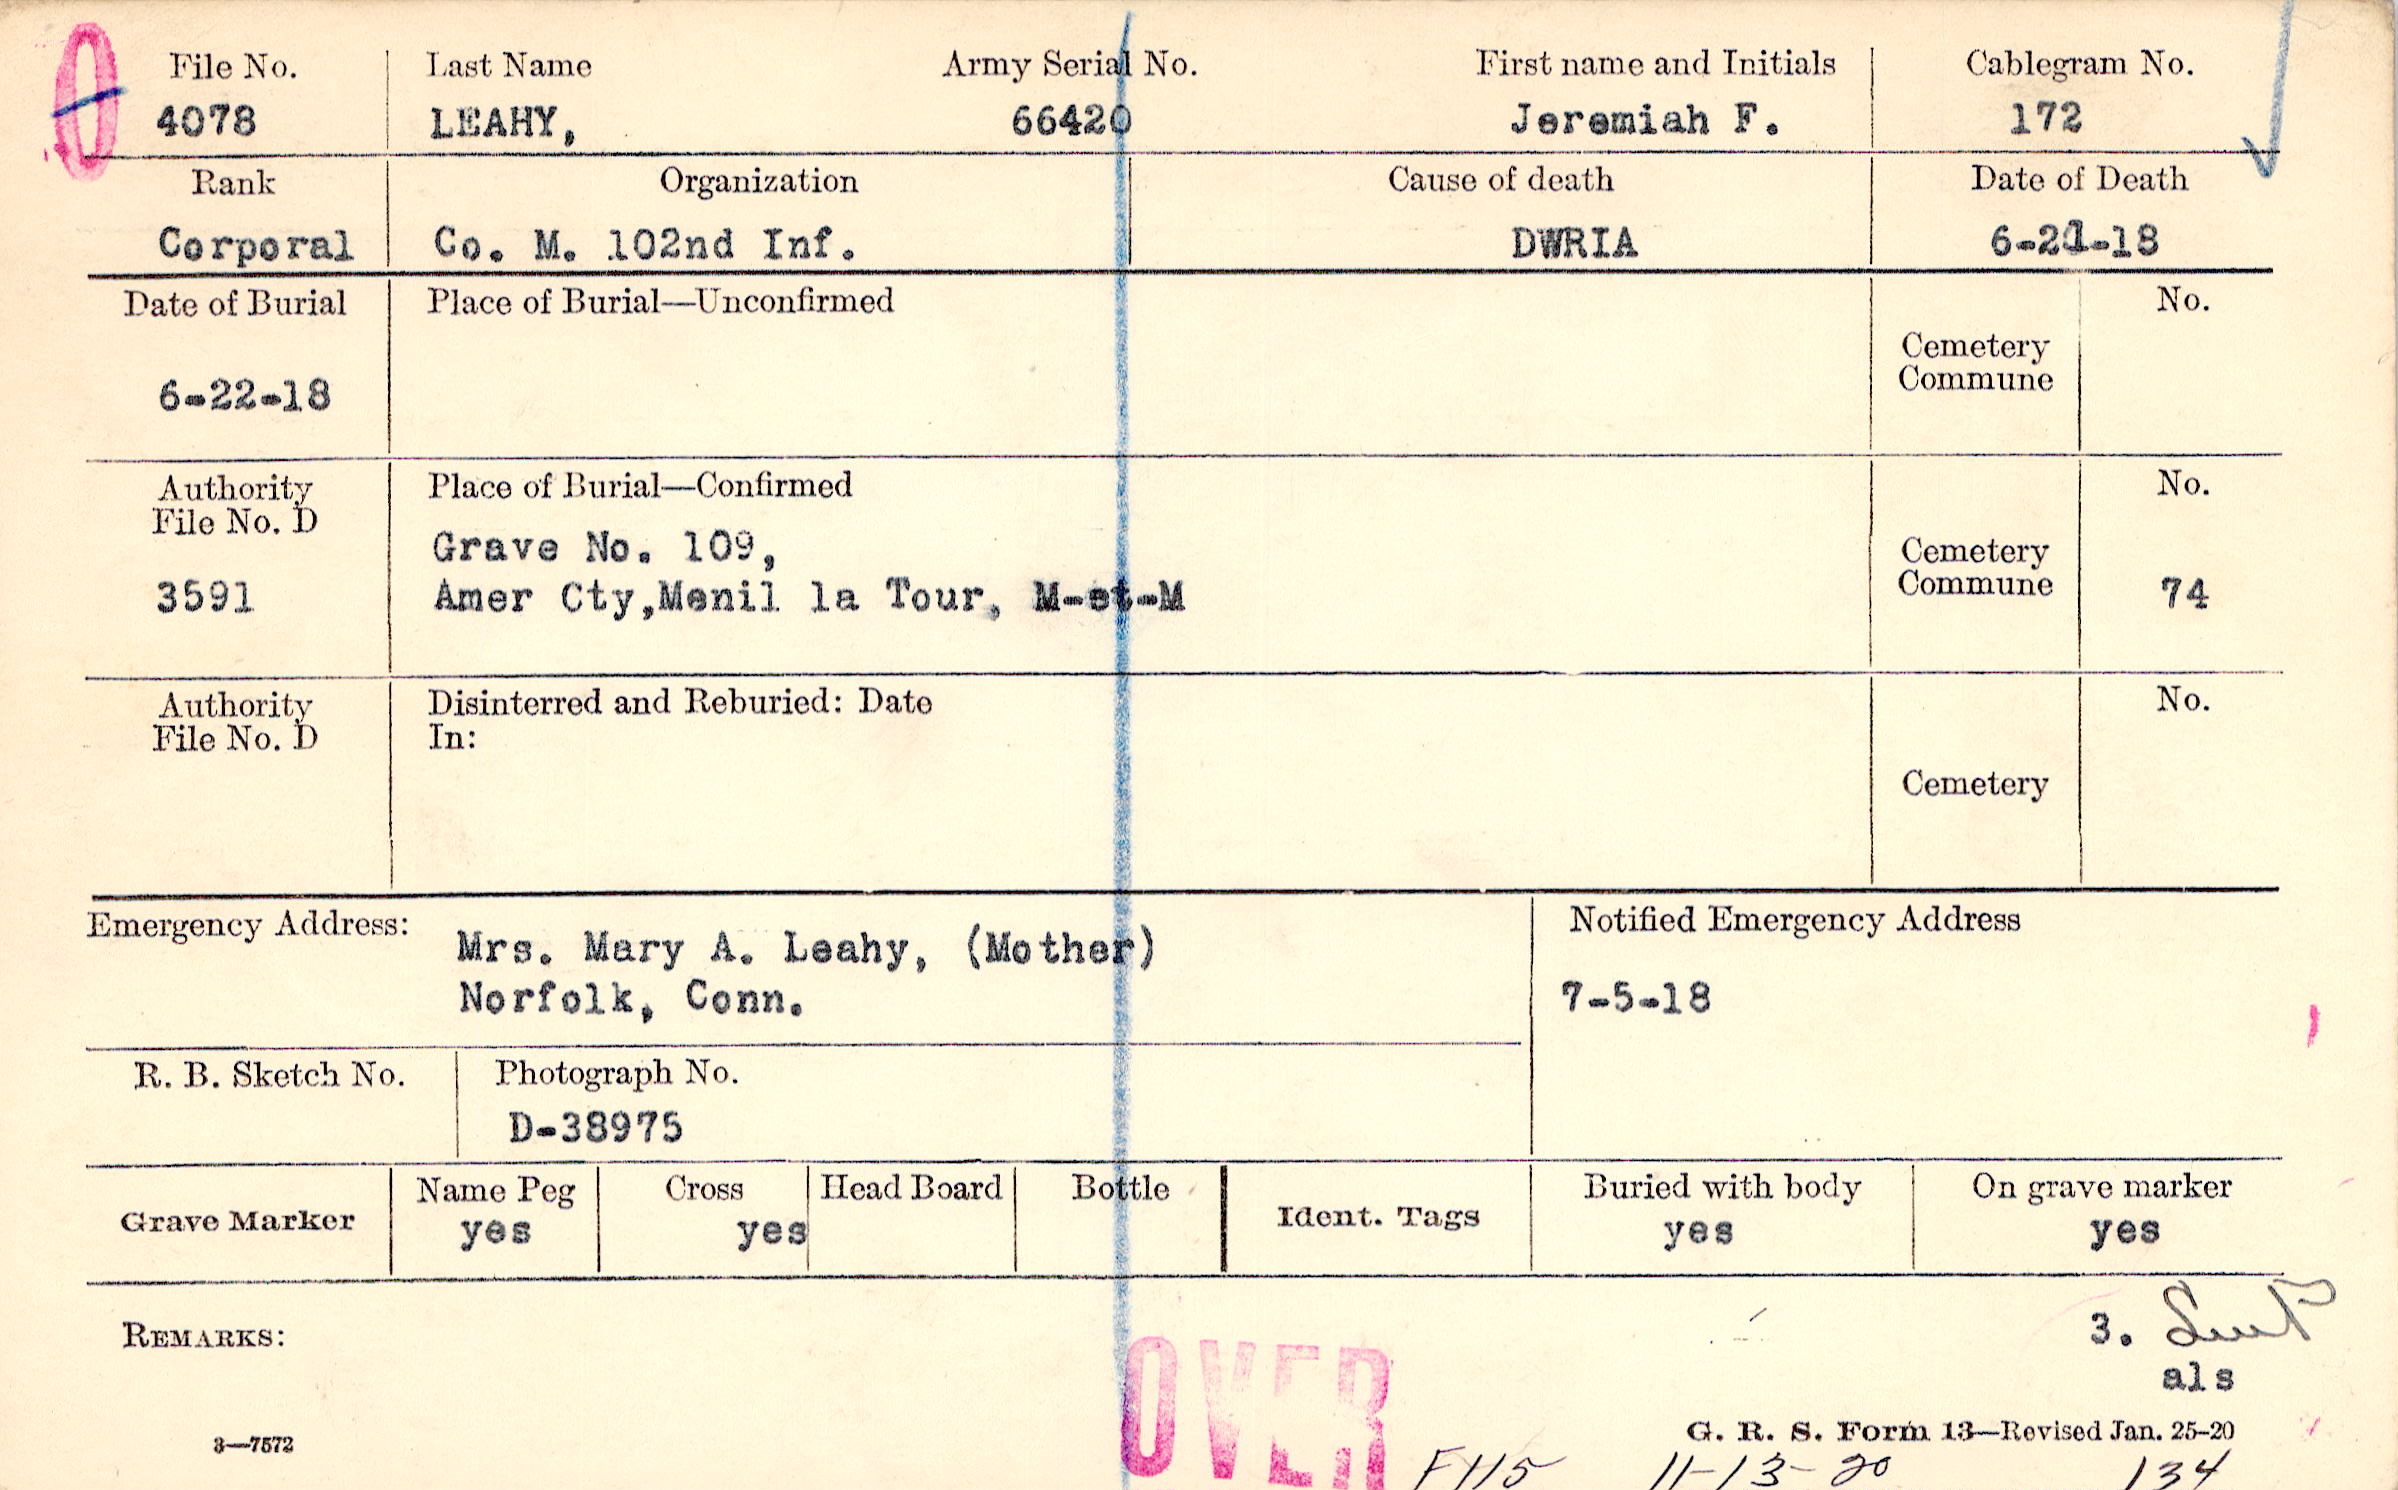 0
File No. Last Name Army Serial No. First name and Initials Cablegram No.
4078 LEAHY, 66420 Jeremiah F. 172
Rank Organization Cause of death Date of Death
Corporal Co. M. 102nd Inf. DWRIA 6-21-18
Date of Burial Place of Burial—Unconfirmed No.
Cemetery
Commune
6-22-18
Authority Place of Burial—Confirmed No.
File No. D
Grave No. 109,
Cemetery
Commune
3591 Amer Cty,Menil la Tour, M-et-M 74
Authority Disinterred and Reburied: Date No.
File No. D In:
Cemetery
Emergency Address: Notified Emergency Address
Mrs. Mary A. Leahy, (Mother)
Norfolk, Conn. 7-5-18
R. B. Sketch No. Photograph No.
D-38975
Name Peg Cross Head Board Bottle Buried with body On grave marker
Grave Marker Ident. Tags
yes yes yes yes
REMARKS: 3.
als
OVER
3—7572 G. R. S. Form 13—Revised Jan. 25-20
11-13-20 134